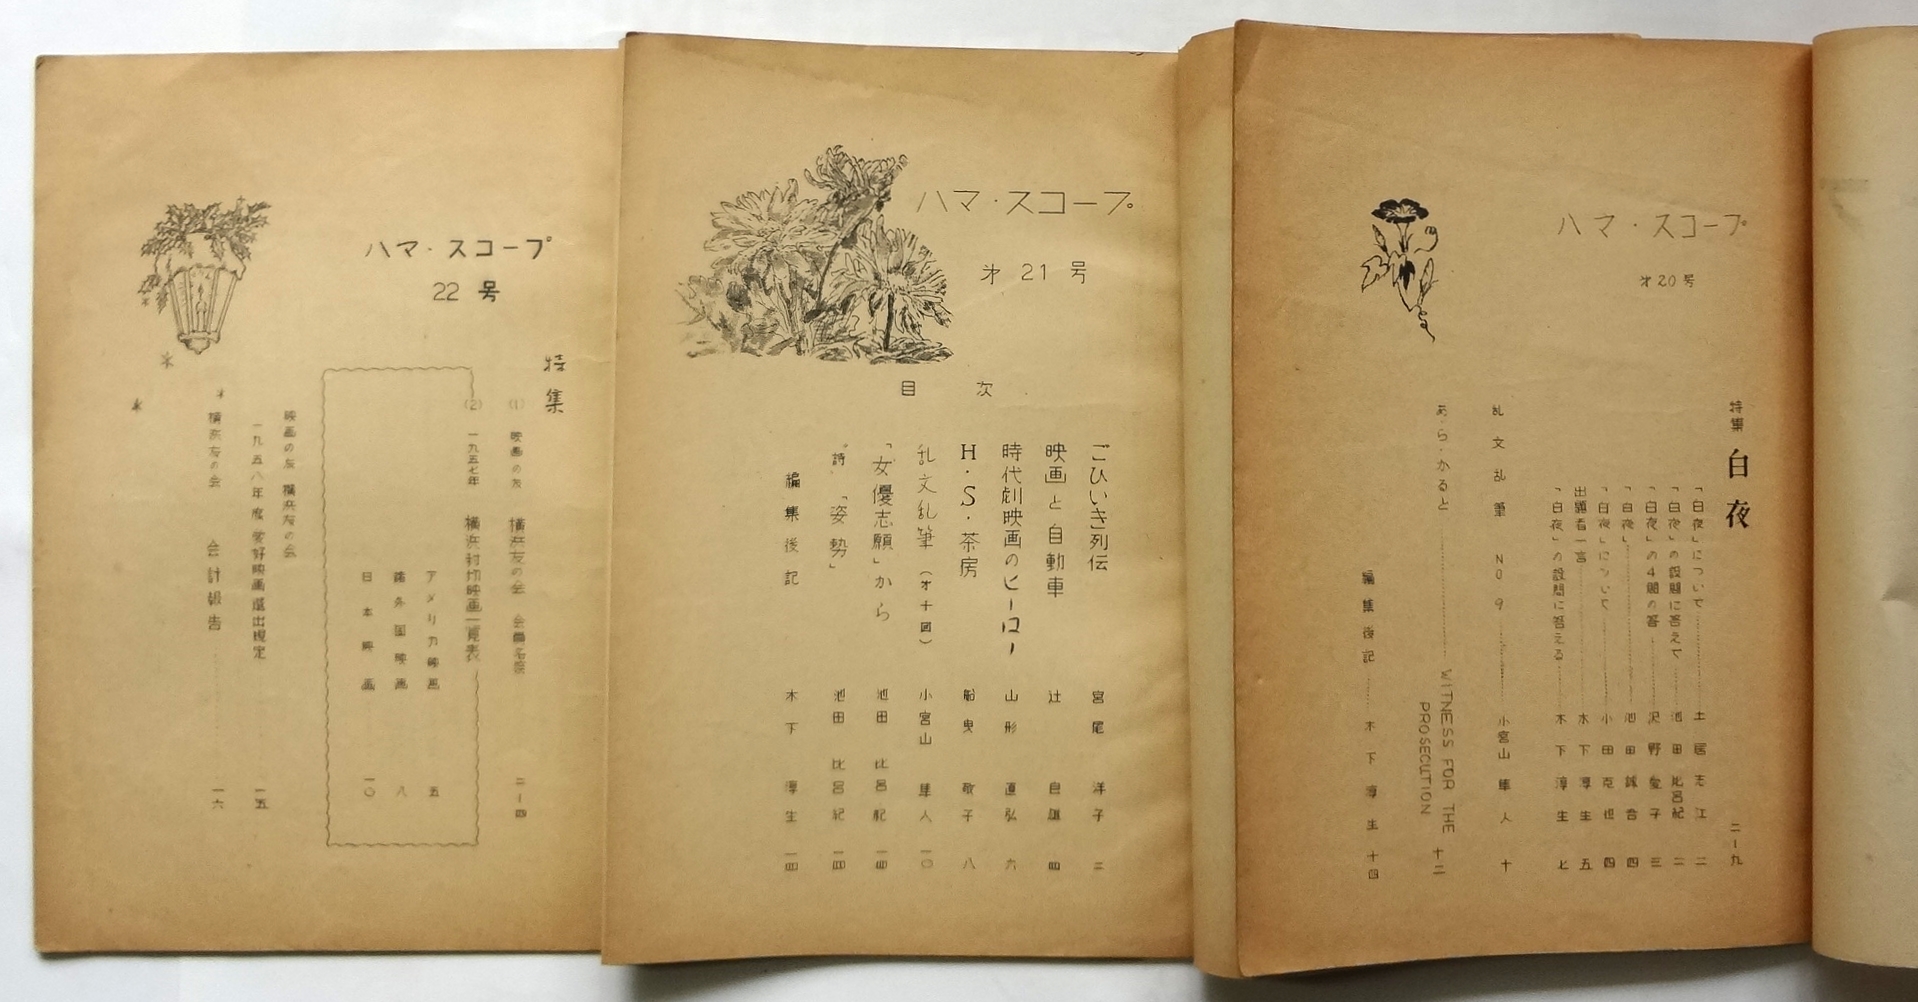 ハマ・スコープ
22 号
特集
(1) 映画の友 横浜友の会 会員名簿 二―四
(2) 一九五七年 横浜封切映画一覧表
アメリカ映画 五
諸外国映画 八
日本映画 一〇
映画の友 横浜友の会
一九五八年度 愛好映画選出規定 一五
横浜友の会 会計報告 一六
ハマ・スコープ
才 21 号
目次
ごひいき列伝 宮尾 洋子 二
映画と自動車 辻 自雄 四
時代劇映画のヒーロー 山形 直弘 六
H・S・茶房 船曳 敬子 八
乱文乱筆(才十回) 小宮山 隼人 一〇
「女優志願」から 池田 比呂紀 一四
"詩"「姿勢」 池田 比呂紀 一四
編集後記 木下 淳生 一四
ハマ・スコープ
才20号
特集 白夜 二―九
「白夜」について 土居志江 二
「白夜」の設問に答えて 池田比呂紀 二
「白夜」の4題の答 沢野愛子 三
「白夜」 池田 四
「白夜」について 小田克也 四
出題者一言 木下淳生 五
「白夜」の設問に答える 木下淳生 七
乱文乱筆 NO 9 小宮山隼人 十
あら・かると WITNESS FOR THE PROSECUTION 十二
編集後記 木下淳生 十四